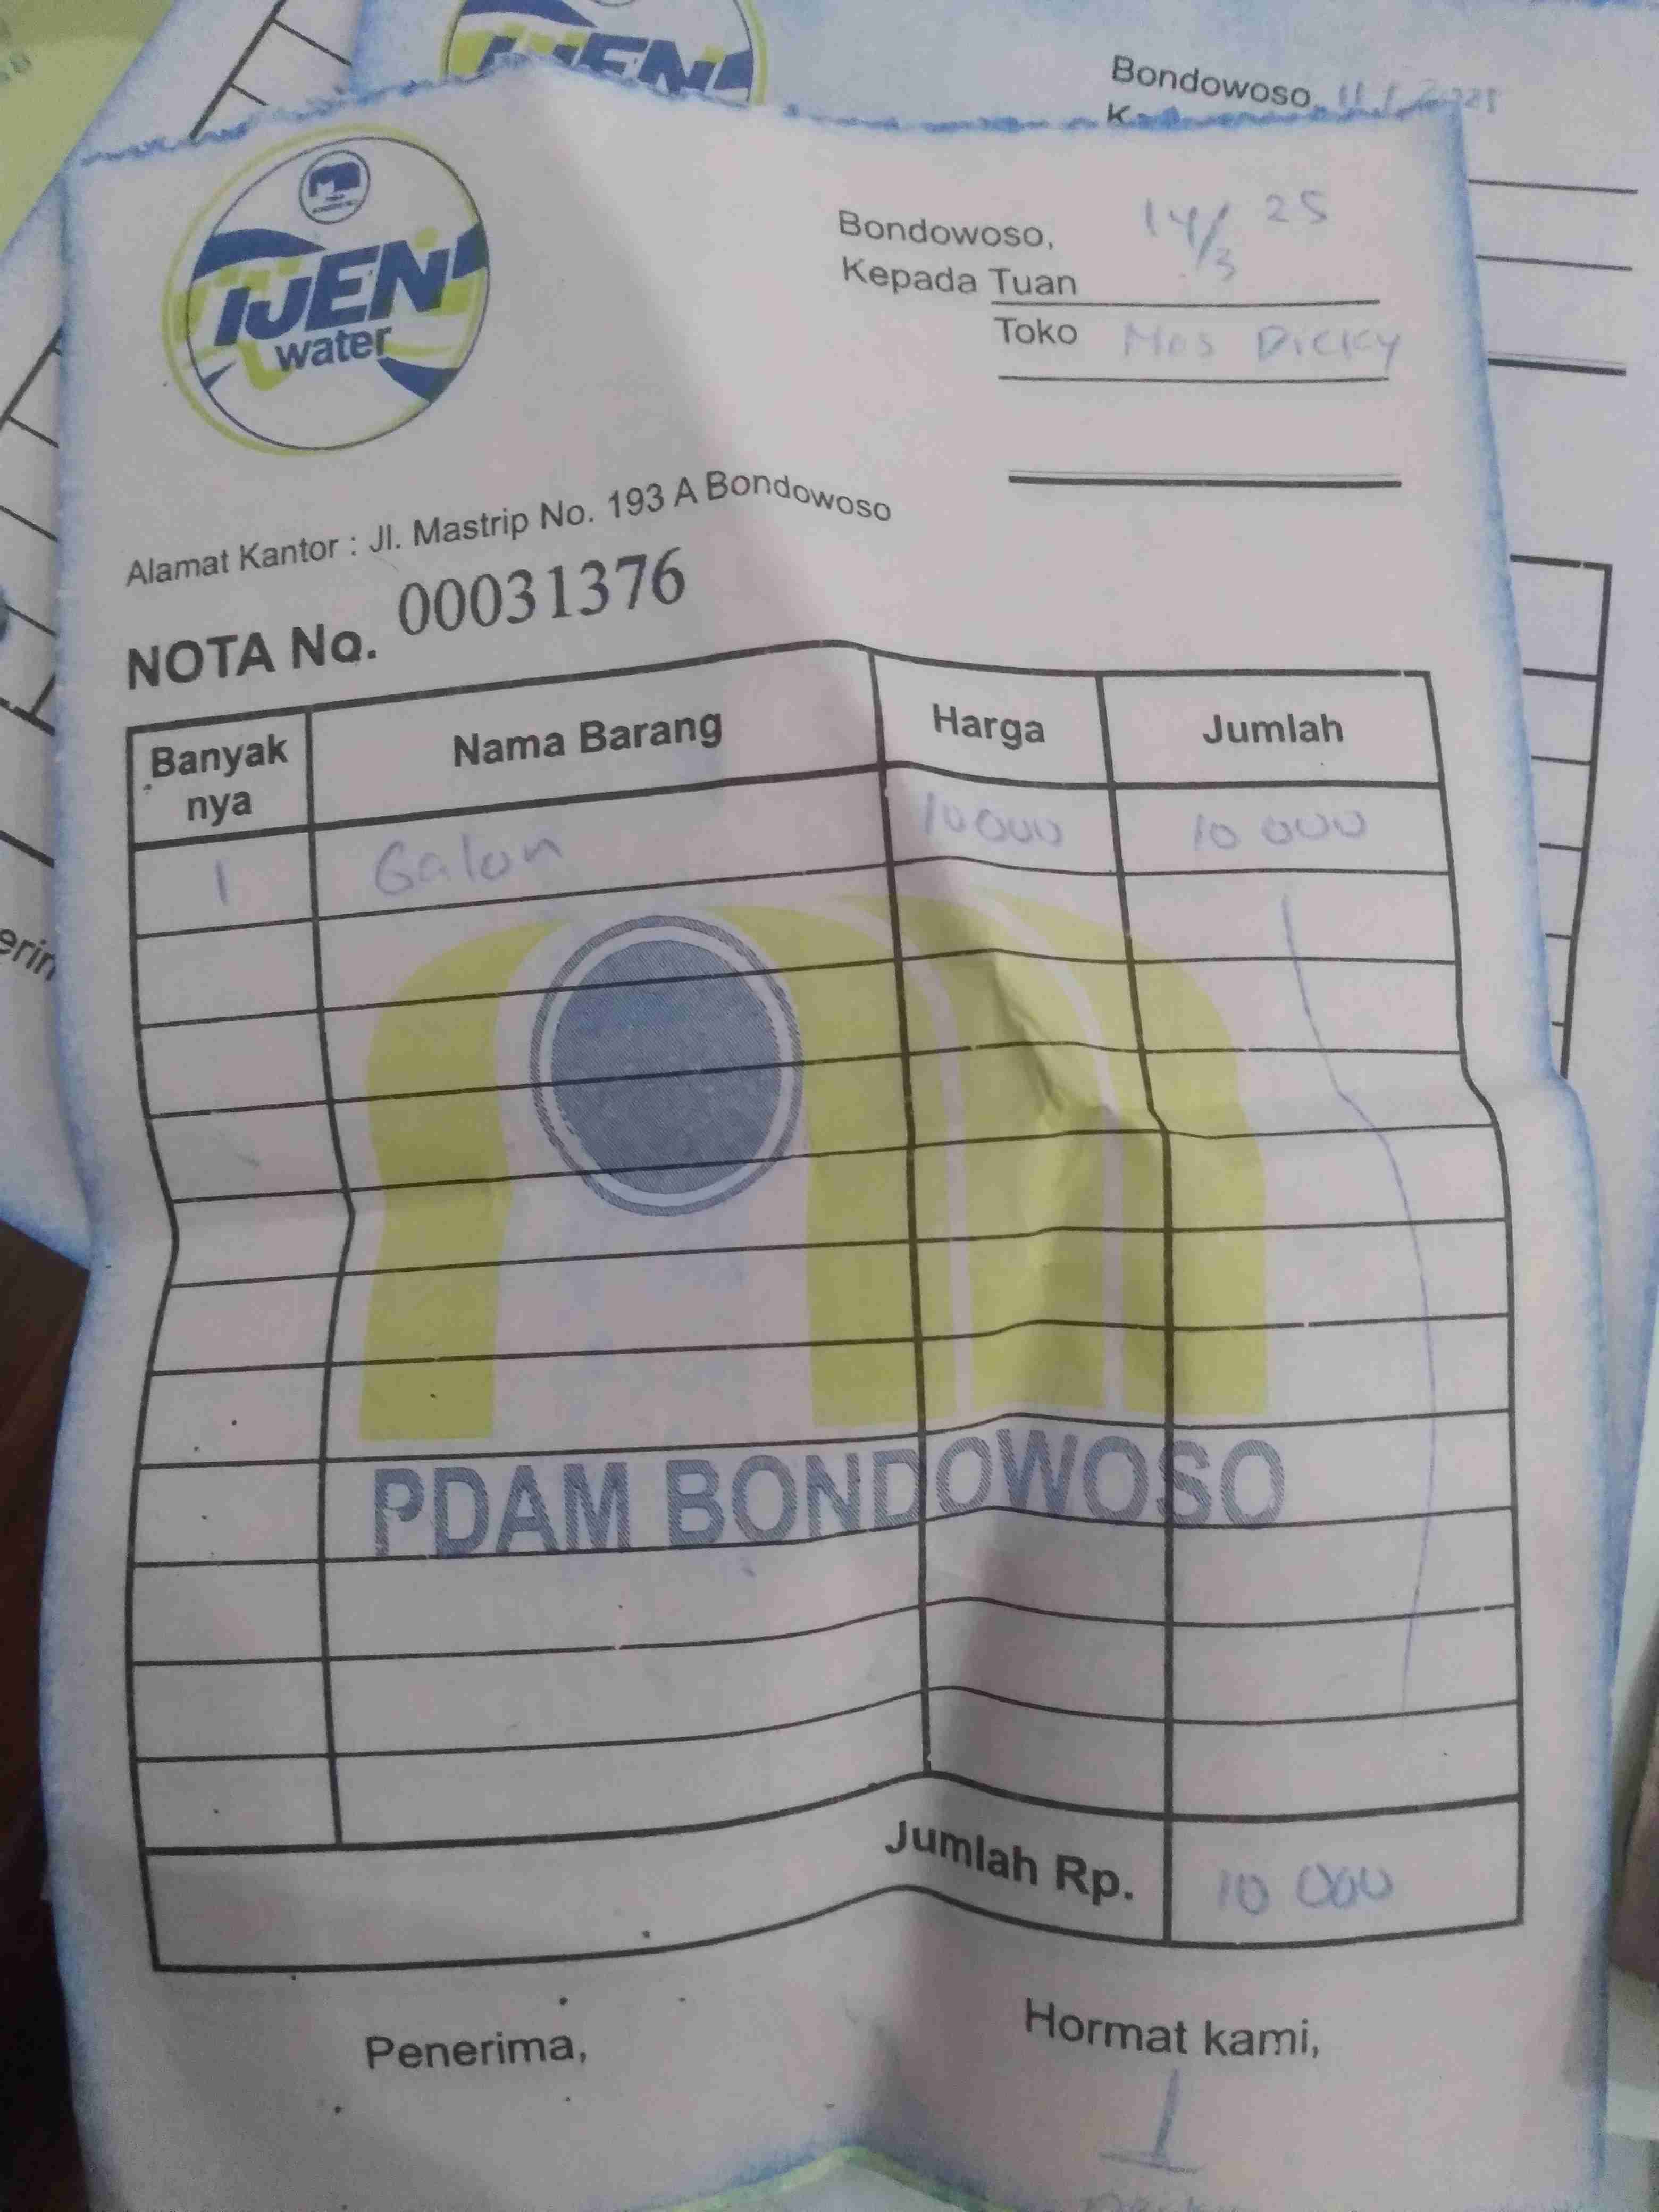 IJEN
Bondowoso,
IJEN
water
Bondowoso, 14/3 25
Kepada Tuan
Toko Mas Dicky
Alamat Kantor : Jl. Mastrip No. 193 A Bondowoso
NOTA No. 00031376
Banyak nya Nama Barang Harga Jumlah
1 Galon 10000 10 000
PDAM BONDOWOSO
Jumlah Rp. 10 000
Penerima, Hormat kami,